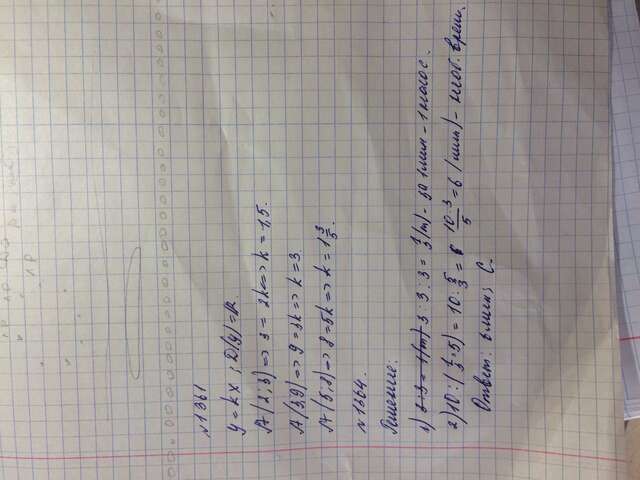 №1361
y = kx ; D(y) = R.
A(2;3) => 3 = 2k => k = 1,5.
A(3;9) => 9 = 3k => k = 3.
A(5;8) => 8 = 5k => k = 1 3/5.
№1364.
Решение:
1) 3 : 3 : 3 = 1/3 (т) - за 1 мин - 1 насос.
2) 10 : (1/3 · 5) = 10 : 5/3 = 10·3/5 = 6 (мин) - необ. время.
Ответ: 6 мин; C.